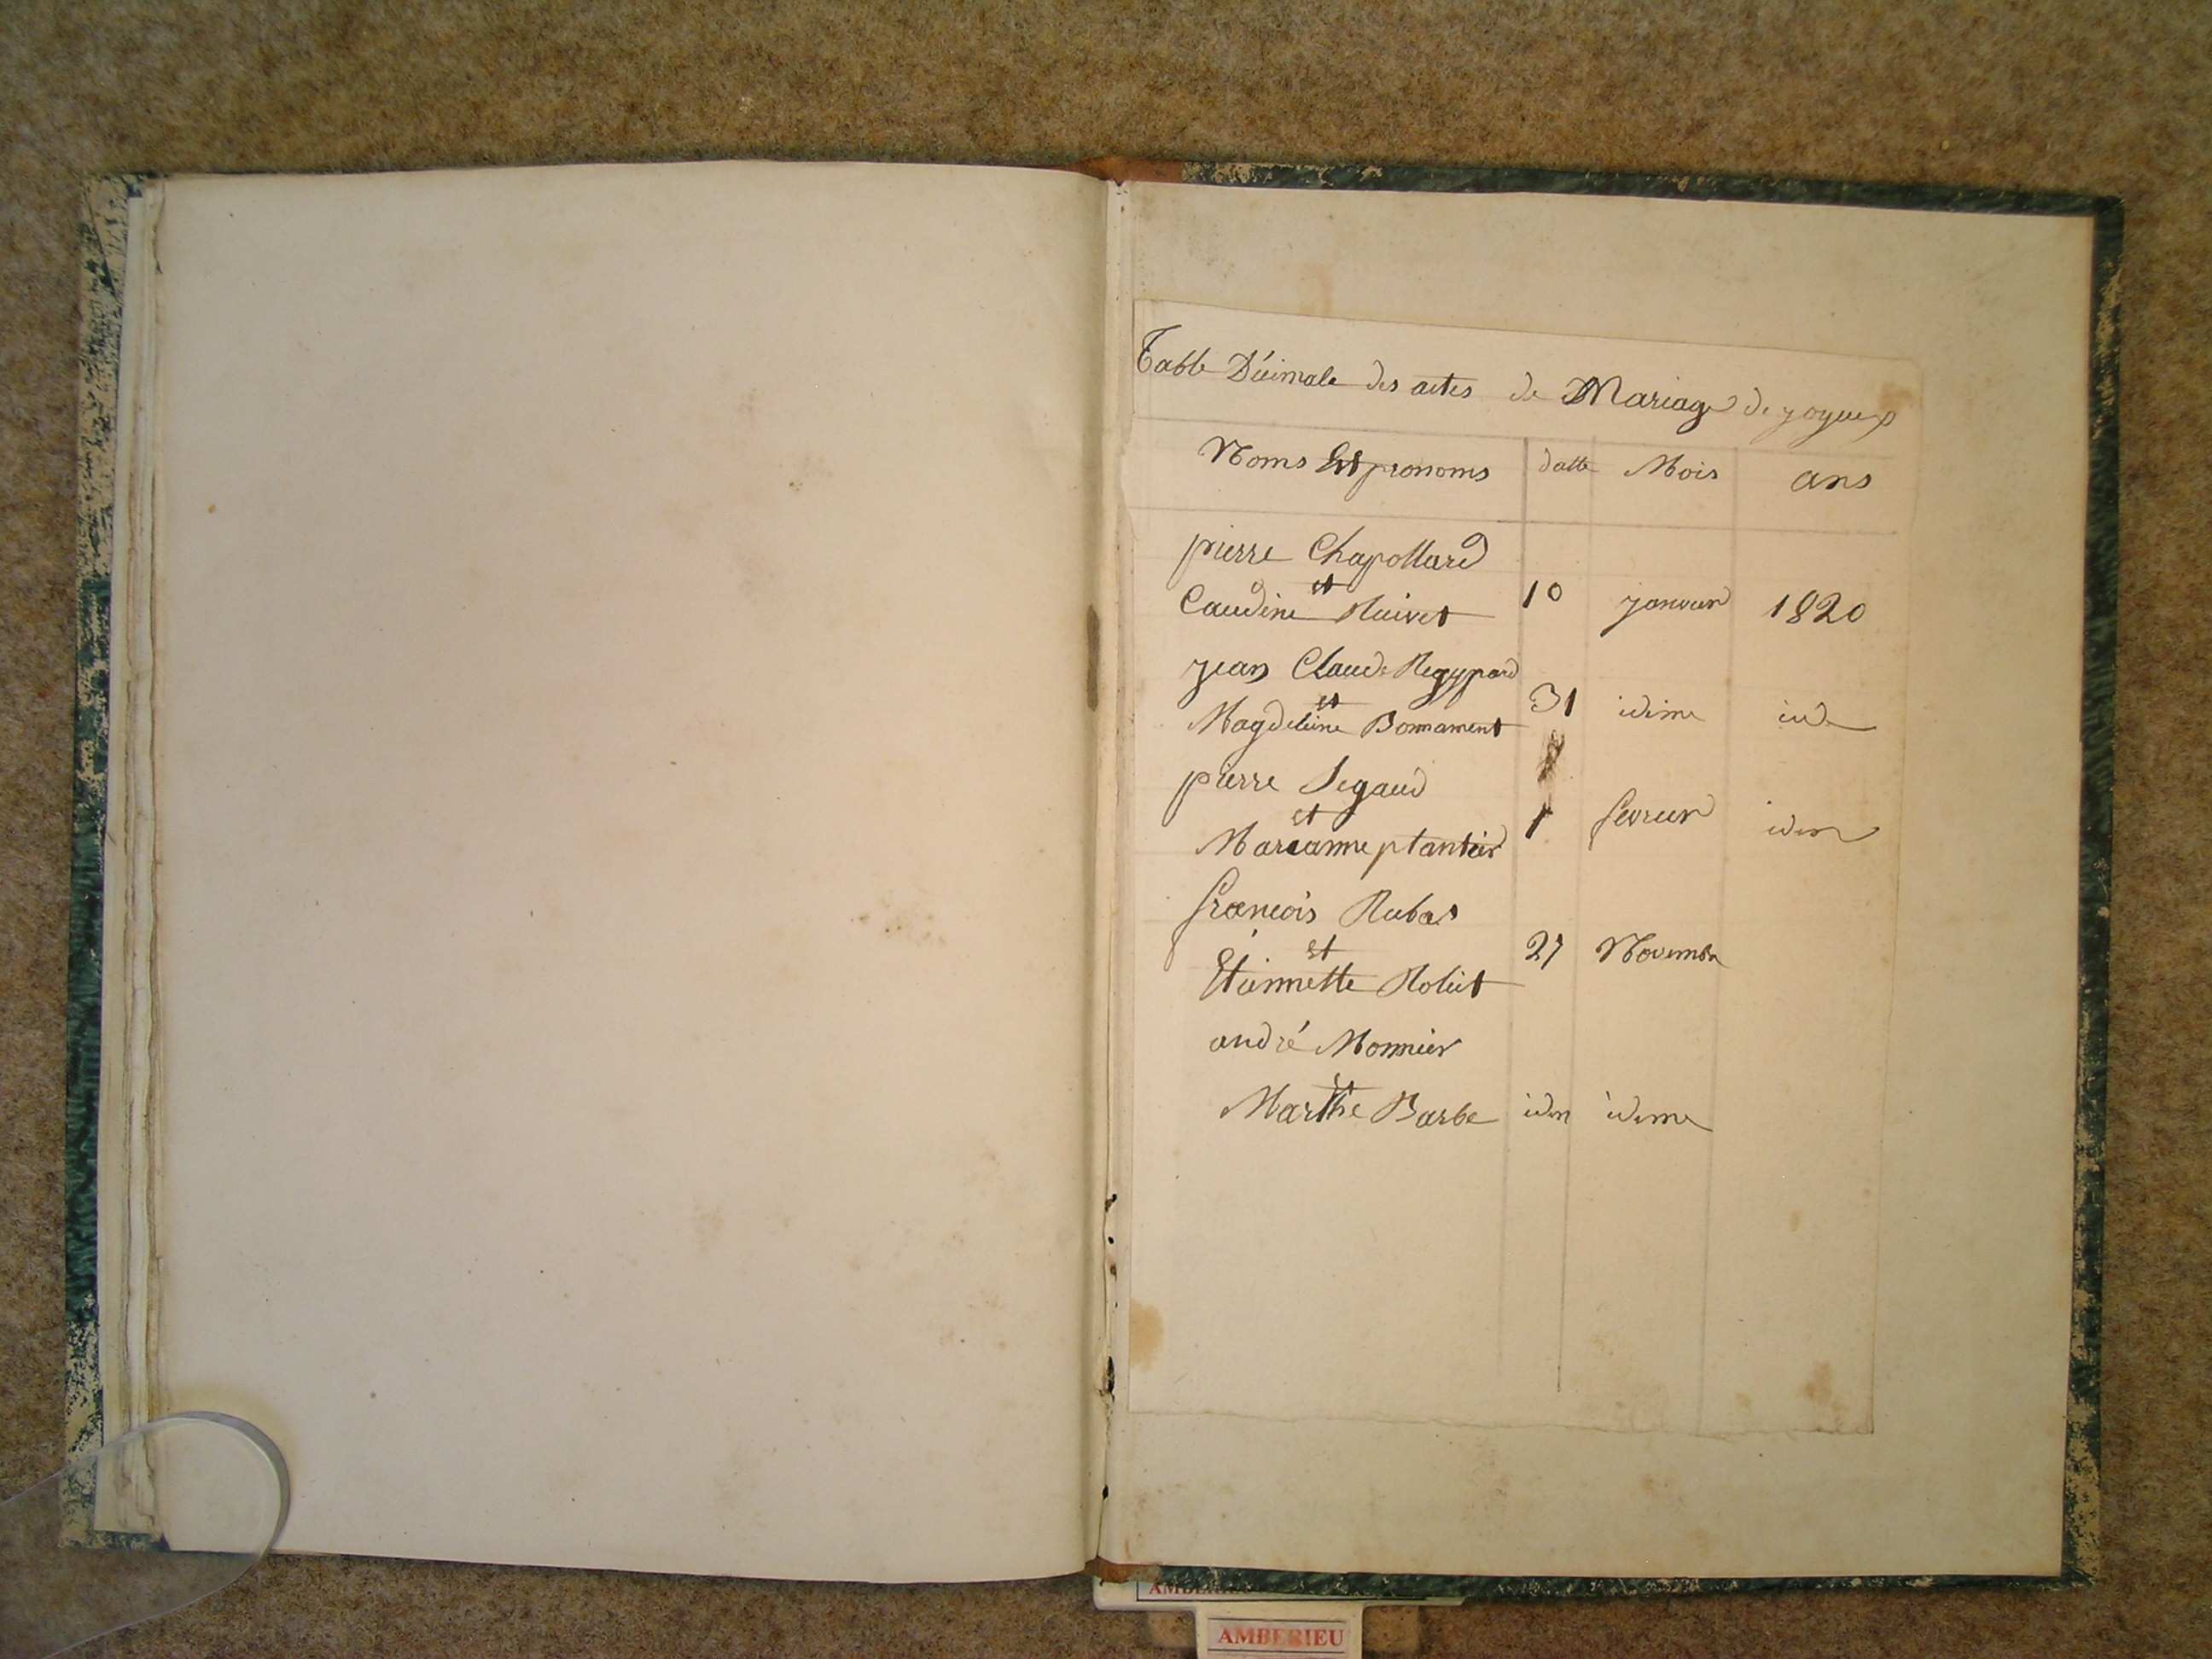 Table Décimale des actes de Mariage de joyeux
Noms Et pronoms datte Mois ans
pierre Chapollard
et
Caudine Ruivet 10 janvier 1820
jean Claude Regypard
et
Magdeleine Bonnament 31 ideme id
pierre Segaud
et
Marianne plantier 1 fevrier idem
francois Rubat
et
Etiennette Roliet 27 Novembre
andré Monnier
et
Marthe Barbe idem ideme
AMBERIEU